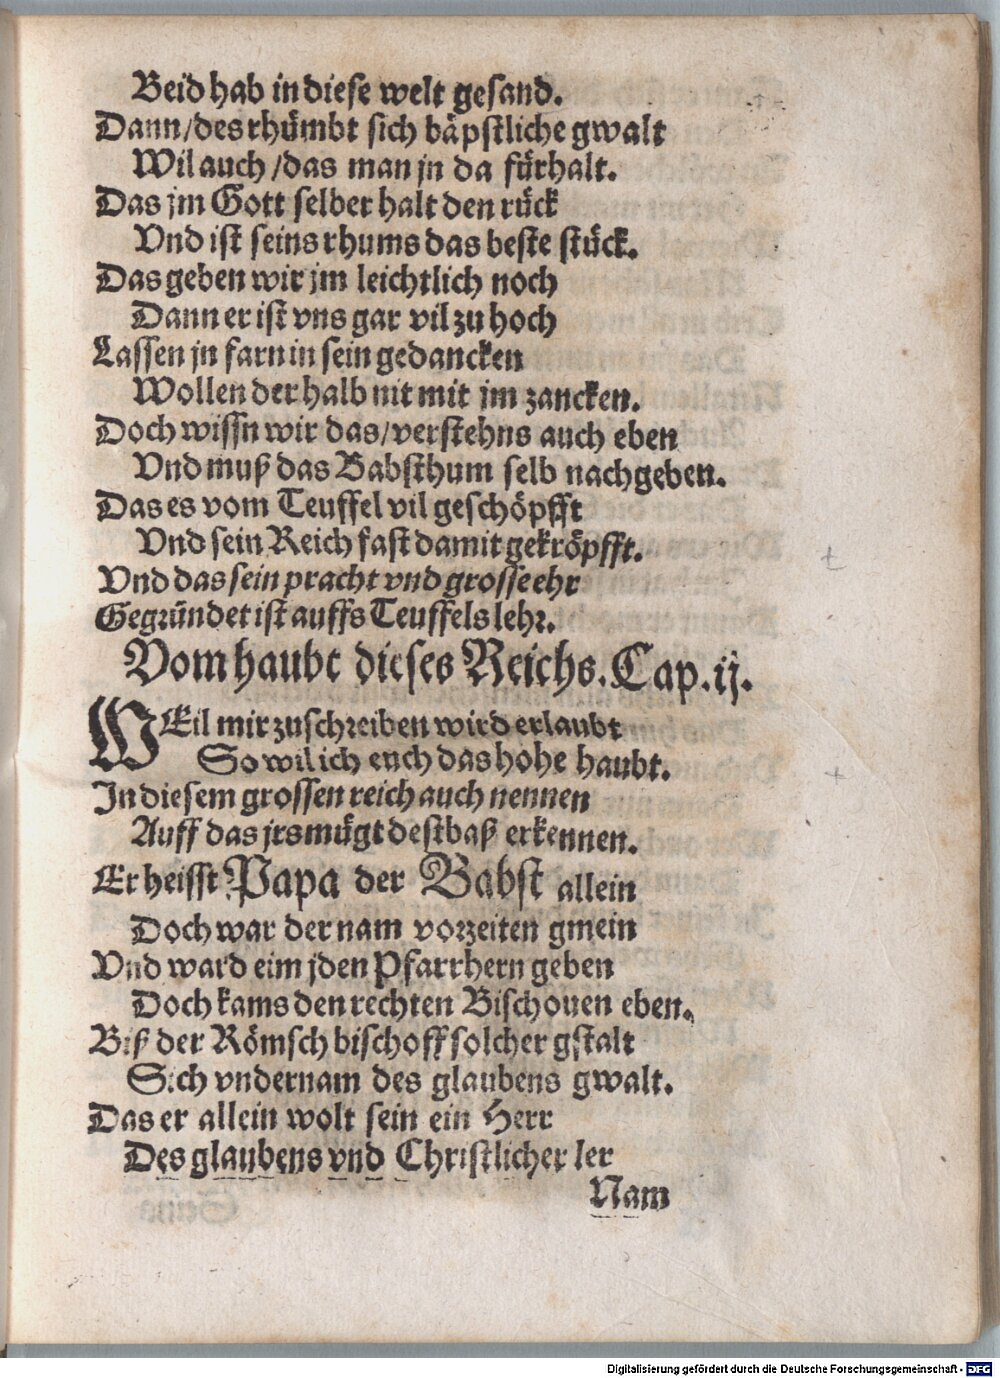 Beid hab in diese welt gesand.
Dann/des rhümbt sich bäpstliche gwalt
Wil auch/das man jn da fürhalt.
Das jm Gott selber halt den rück
Vnd ist seins rhums das beste stück.
Das geben wir jm leichtlich noch
Dann er ist vns gar vil zu hoch
Lassen jn farn in sein gedancken
Wollen derhalb nit mit jm zancken.
Doch wissn wir das/verstehns auch eben
Vnd muß das Babsthum selb nachgeben.
Das es vom Teuffel vil geschöpfft
Vnd sein Reich fast damit gekröpfft.
Vnd das sein pracht vnd grosse ehr
Gegründet ist auffs Teuffels lehr.
Vom haubt dieses Reichs. Cap. ij.
WEil mir zuschreiben wird erlaubt
So wil ich euch das hohe haubt.
In diesem grossen reich auch nennen
Auff das jrs mügt destbaß erkennen.
Er heisst Papa der Babst allein
Doch war der nam vorzeiten gmein
Vnd ward eim jden Pfarrhern geben
Doch kams den rechten Bischouen eben.
Biß der Römsch bischoff solcher gstalt
Sich vndernam des glaubens gwalt.
Das er allein wolt sein ein Herr
Des glaubens vnd Christlicher ler
Nam
Digitalisierung gefördert durch die Deutsche Forschungsgemeinschaft - DFG